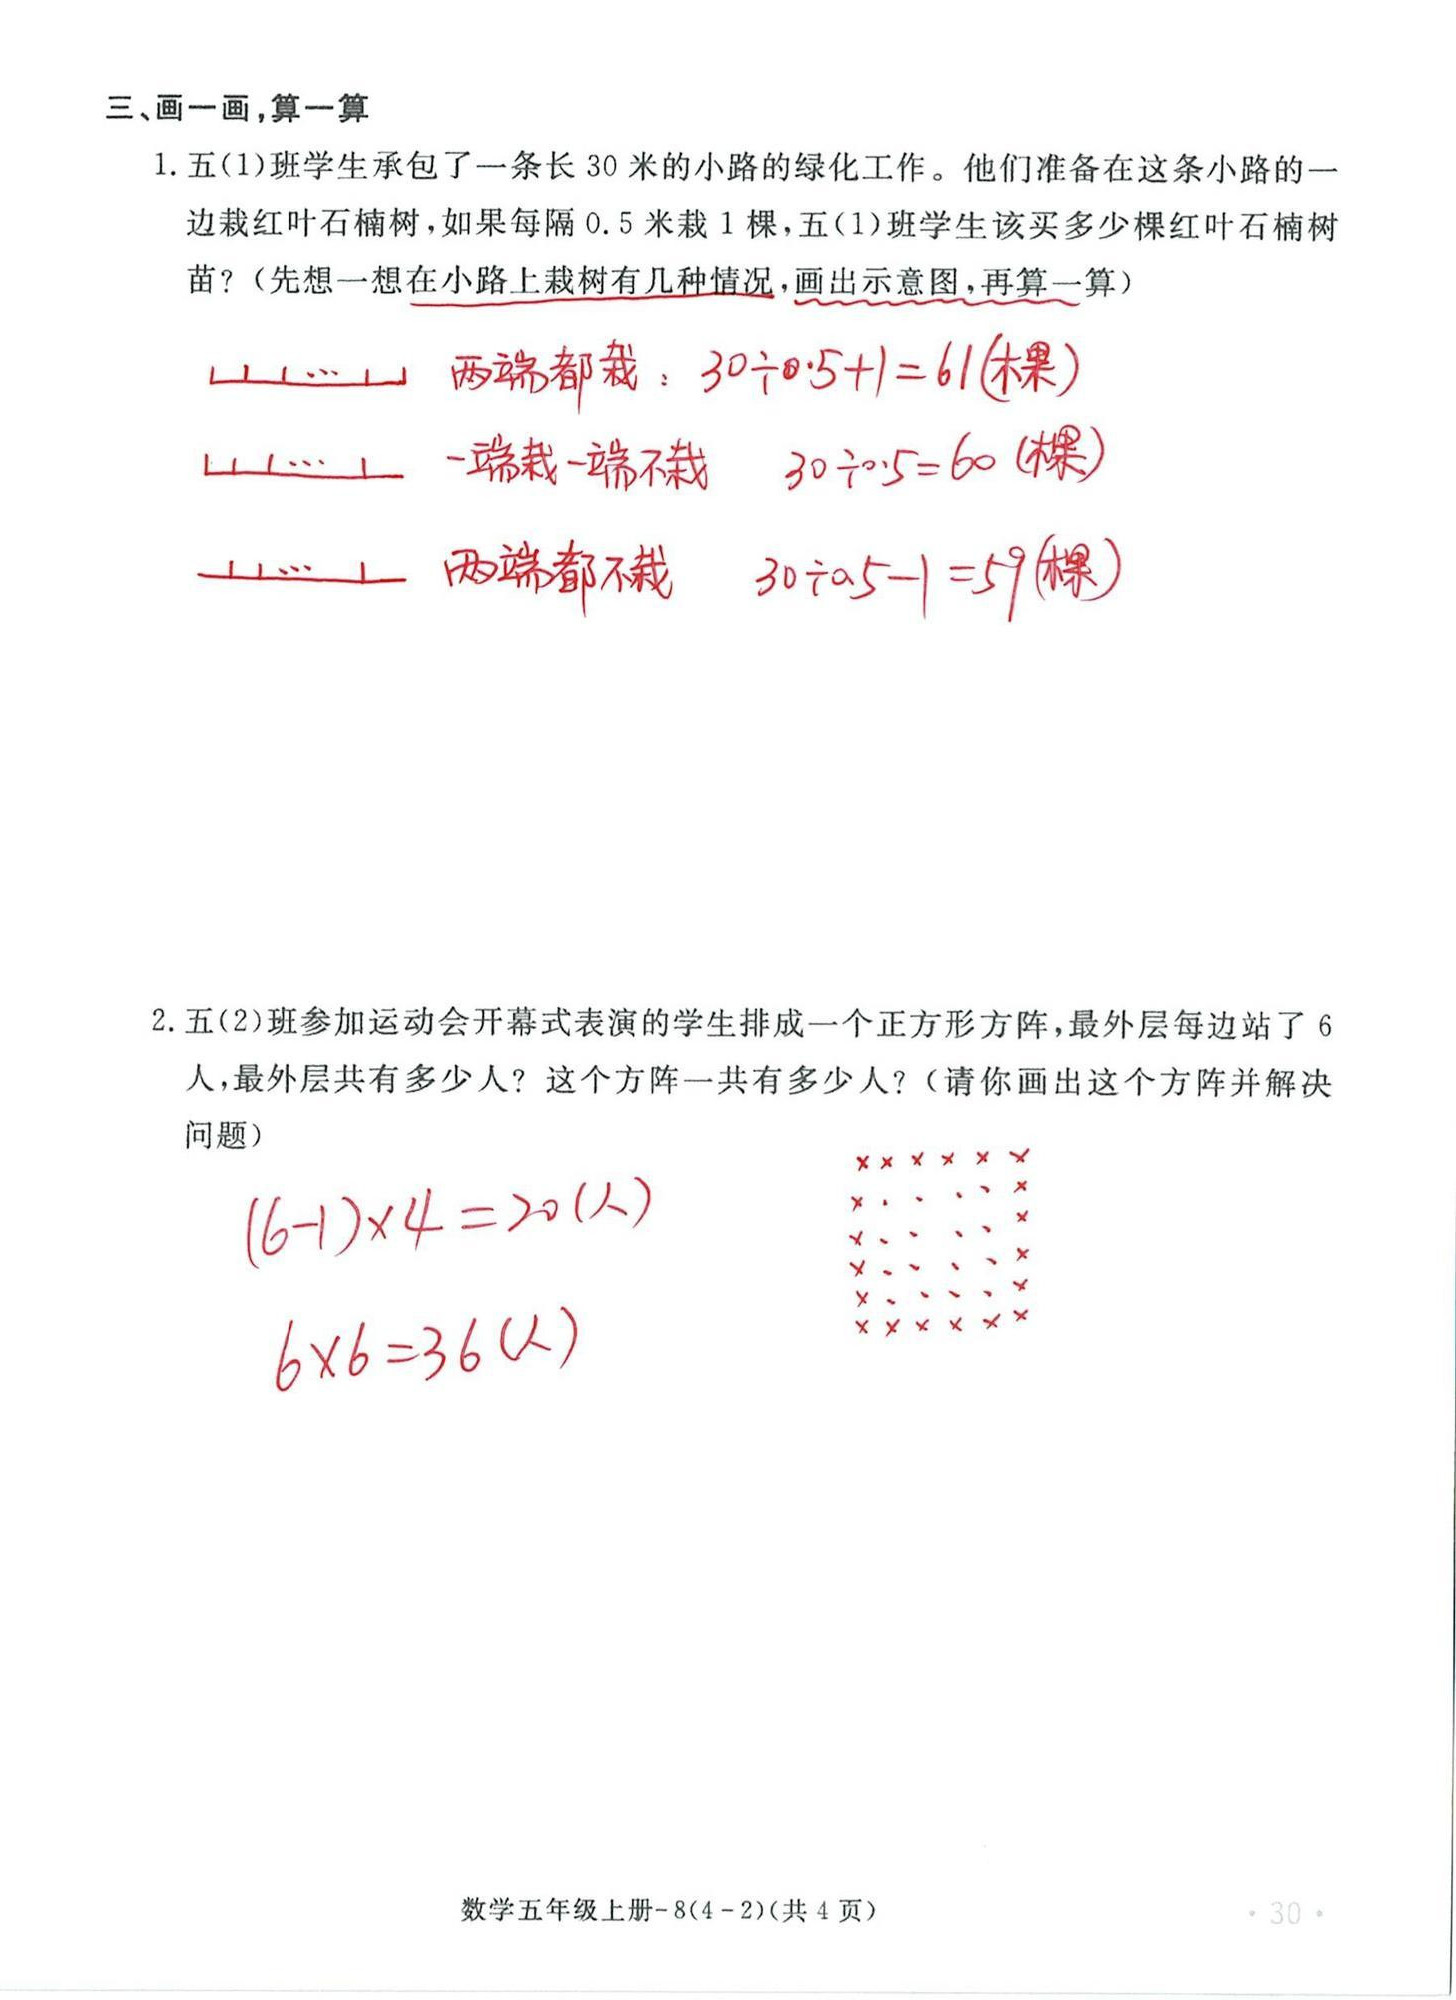 三、画一画,算一算
1. 五(1)班学生承包了一条长 30 米的小路的绿化工作。他们准备在这条小路的一
边栽红叶石楠树,如果每隔 0.5 米栽 1 棵,五(1)班学生该买多少棵红叶石楠树
苗?(先想一想在小路上栽树有几种情况,画出示意图,再算一算)
两端都栽: 30÷0.5+1=61(棵)
一端栽一端不栽 30÷0.5=60(棵)
两端都不栽 30÷0.5-1=59(棵)
2. 五(2)班参加运动会开幕式表演的学生排成一个正方形方阵,最外层每边站了 6
人,最外层共有多少人? 这个方阵一共有多少人?(请你画出这个方阵并解决
问题)
(6-1)×4=20(人)
6×6=36(人)
数学五年级上册-8(4-2)(共 4 页)
·30·